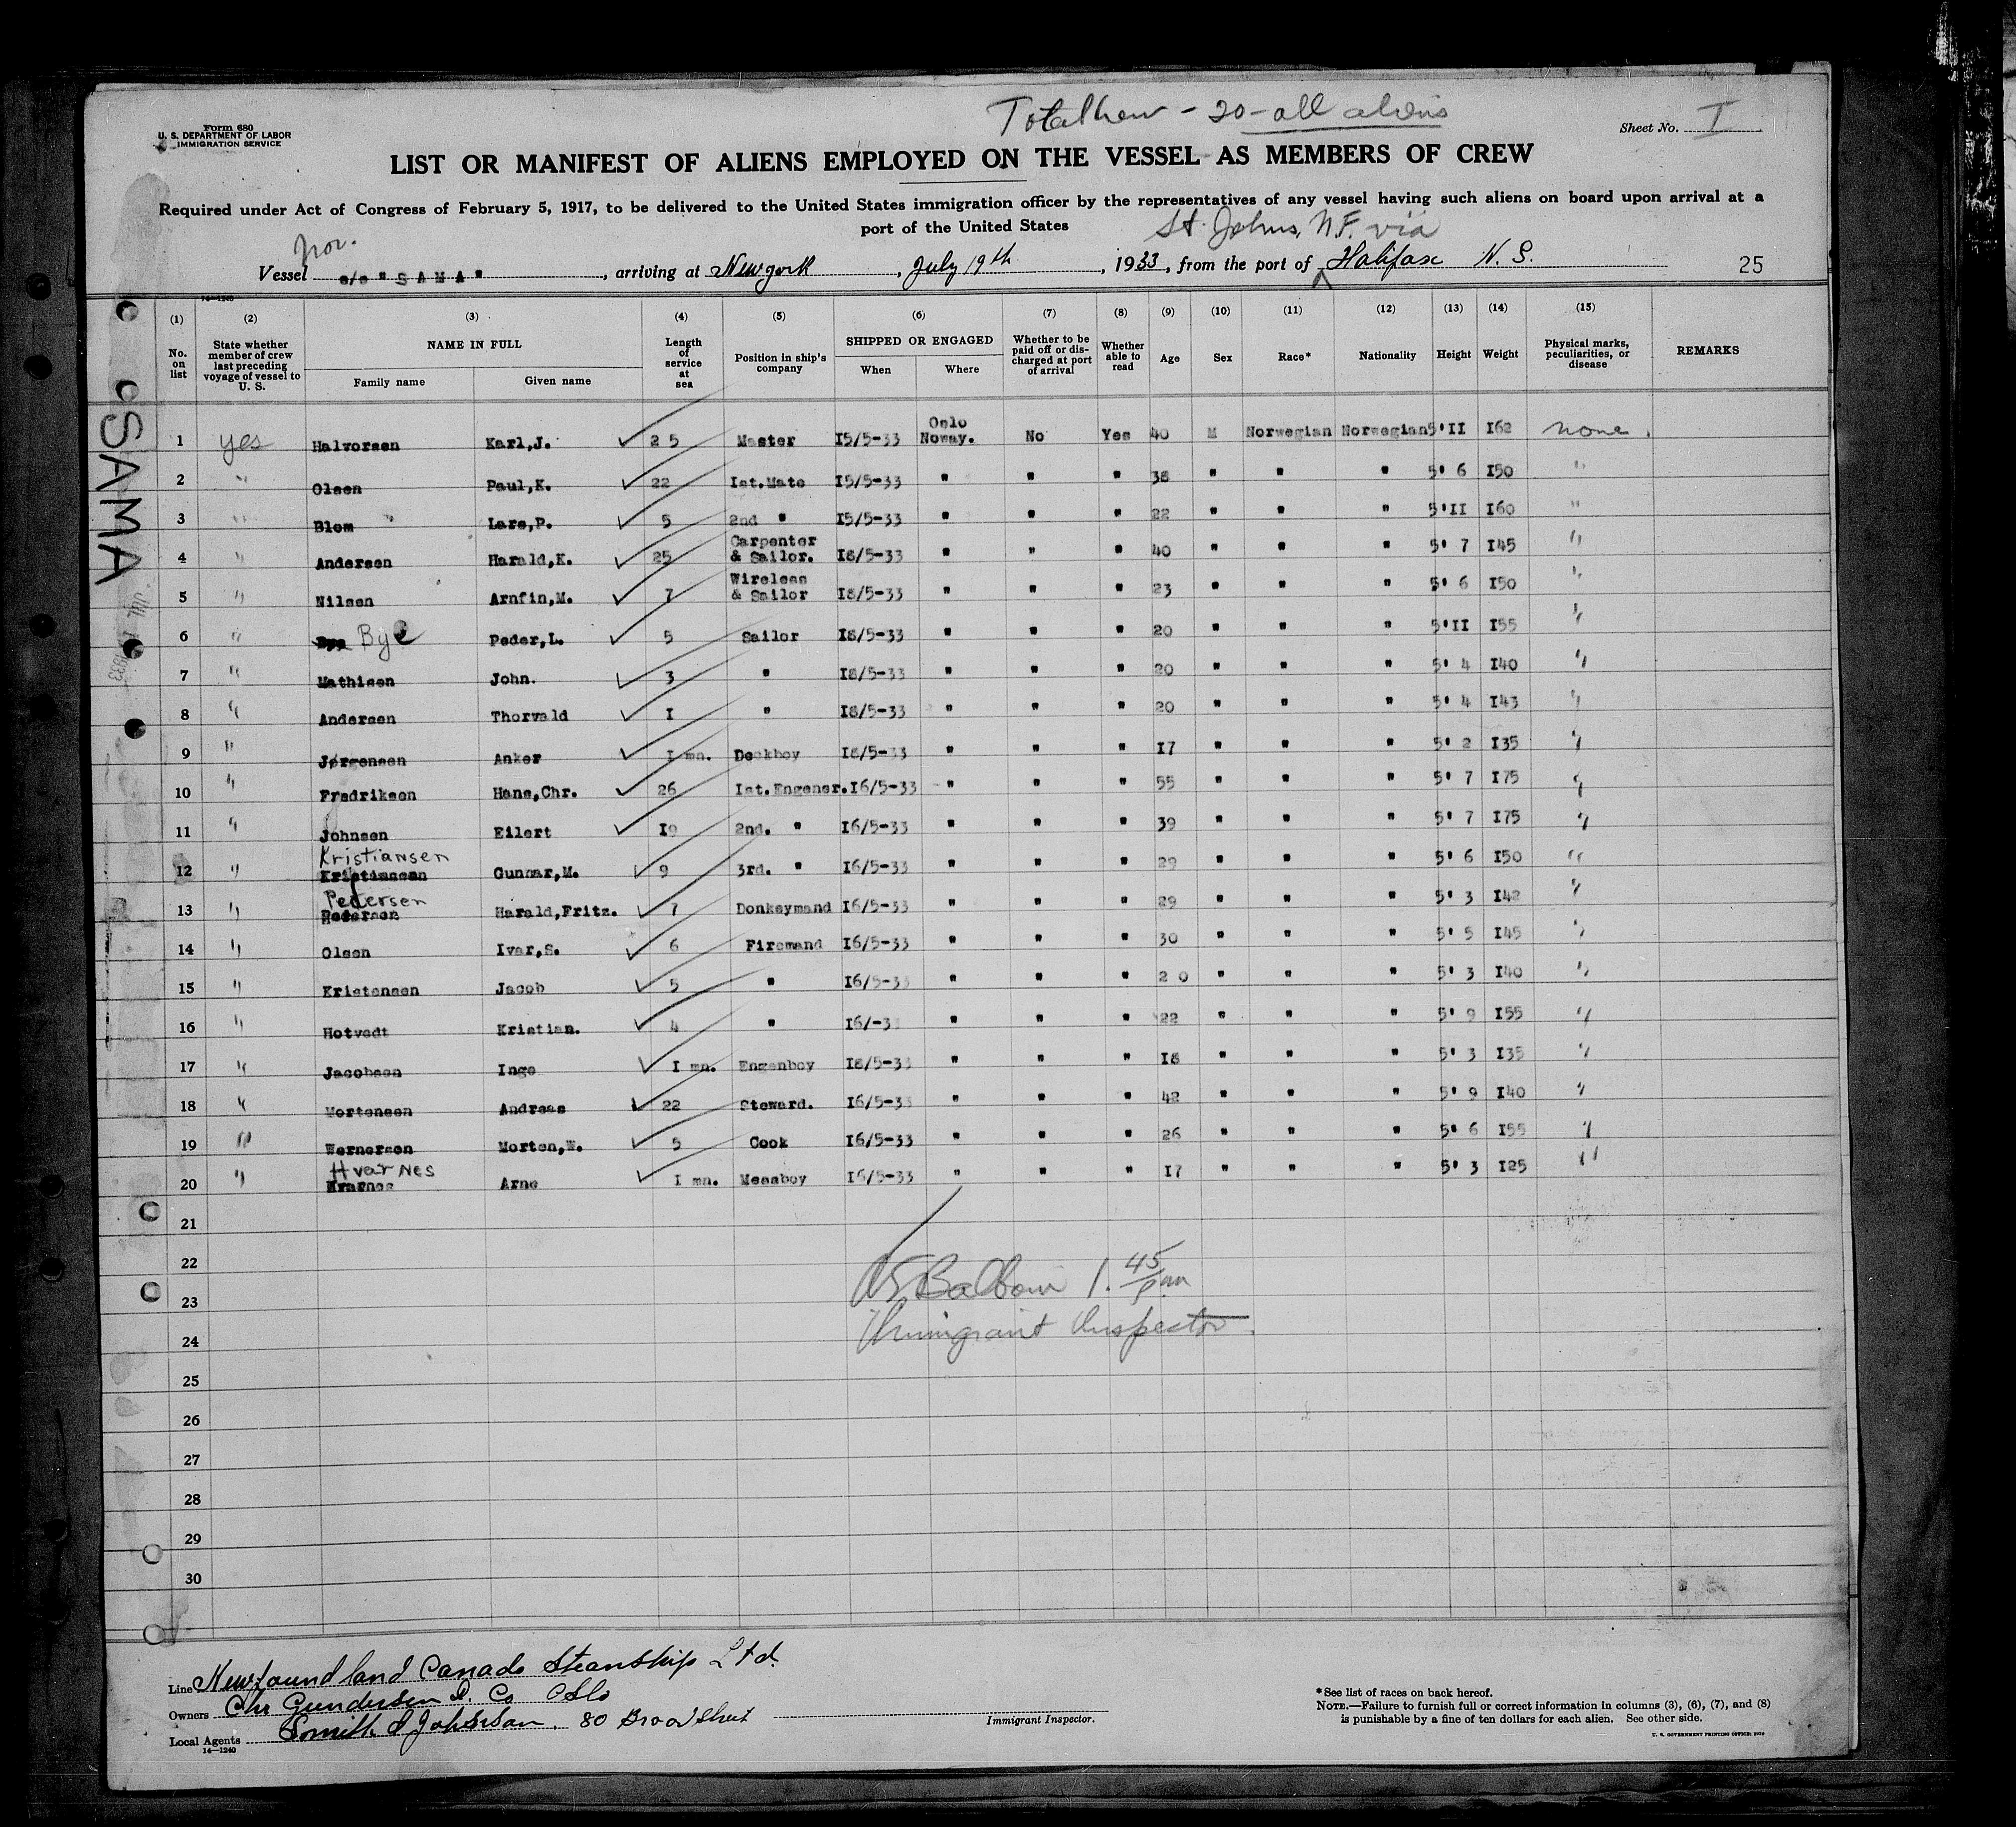 Total Crew - 20 - all aliens
Form 680
U. S. DEPARTMENT OF LABOR
IMMIGRATION SERVICE
Sheet No. I
LIST OR MANIFEST OF ALIENS EMPLOYED ON THE VESSEL AS MEMBERS OF CREW
Required under Act of Congress of February 5, 1917, to be delivered to the United States immigration officer by the representatives of any vessel having such aliens on board upon arrival at a
port of the United States
St. Johns, N.F. via
Nor.
Vessel s/s "SAMA", arriving at New york, July 19th, 1933, from the port of Halifax N. S.
25
14—1240
(1) (2) (3) (4) (5) (6) (7) (8) (9) (10) (11) (12) (13) (14) (15)
No. on list State whether member of crew last preceding voyage of vessel to U. S. NAME IN FULL Family name Given name Length of service at sea Position in ship's company SHIPPED OR ENGAGED When Where Whether to be paid off or discharged at port of arrival Whether able to read Age Sex Race* Nationality Height Weight Physical marks, peculiarities, or disease REMARKS
SAMA
1 yes Halvorsen Karl,J. 25 Master I5/5-33 Oslo Noway. No Yes 40 M Norwegian Norwegian 5'II I62 none.
2 " Olsen Paul,K. 22 Ist.Mate I5/5-33 " " " 38 " " " 5' 6 I50 "
3 " Blom Lars,P. 5 2nd " I5/5-33 " " " 22 " " " 5'II I60 "
4 " Andersen Harald,K. 25 Carpenter & Sailor. I8/5-33 " " " 40 " " " 5' 7 I45 "
5 " Nilsen Arnfin,M. 7 Wireless & Sailor I8/5-33 " " " 23 " " " 5' 6 I50 "
6 " Bye Peder,L. 5 Sailor I8/5-33 " " " 20 " " " 5'II I55 "
7 " Mathisen John. 3 " I8/5-33 " " " 20 " " " 5' 4 I40 "
8 " Andersen Thorvald I " I8/5-33 " " " 20 " " " 5' 4 I43 "
9 " Jørgensen Anker I mn. Deckboy I8/5-33 " " " I7 " " " 5' 2 I35 "
10 " Fredriksen Hans,Chr. 26 Ist.Engener. I6/5-33 " " " 55 " " " 5' 7 I75 "
11 " Johnsen Eilert I9 2nd. " I6/5-33 " " " 39 " " " 5' 7 I75 "
12 " Kristiansen Kristiansen Gunnar,M. 9 3rd. " I6/5-33 " " " 29 " " " 5' 6 I50 "
13 " Pedersen Pedersen Harald,Fritz. 7 Donkeymand I6/5-33 " " " 29 " " " 5' 3 I42 "
14 " Olsen Ivar,S. 6 Firemand I6/5-33 " " " 30 " " " 5' 5 I45 "
15 " Kristensen Jacob 5 " I6/5-33 " " " 20 " " " 5' 3 I40 "
16 " Hotvedt Kristian. 4 " I6/-33 " " " 22 " " " 5' 9 I55 "
17 " Jacobsen Inge I mn. Engenboy I8/5-33 " " " I8 " " " 5' 3 I35 "
18 " Mortensen Andreas 22 Steward. I6/5-33 " " " 42 " " " 5' 9 I40 "
19 " Wernersen Morten,W. 5 Cook I6/5-33 " " " 26 " " " 5' 6 I55 "
20 " Hvarnes Arne I mn. Messboy I6/5-33 " " " I7 " " " 5' 3 I25 "
21
22
23
24
25
26
27
28
29
30
1.45 pm
Immigrant Inspector.
Line Newfoundland Canada Steamship Ltd.
Owners Chr Gundersen & Co Oslo
Local Agents Smith & Johnson. 80 Broad Street
14—1240
Immigrant Inspector.
*See list of races on back hereof.
NOTE.—Failure to furnish full or correct information in columns (3), (6), (7), and (8)
is punishable by a fine of ten dollars for each alien. See other side.